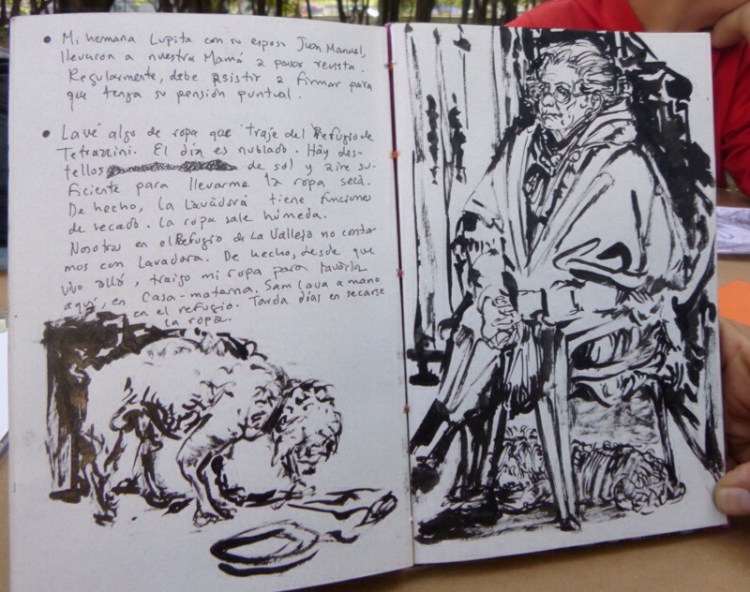 • Mi hermana Lupita con su esposo Juan Manuel,
llevaron a nuestra Mamá a pasar revista.
Regularmente, debe asistir a firmar para
que tenga su pensión puntual.
• Lavé algo de ropa que traje del Refugio de
Tetrazzini. El día es nublado. Hay des-
tellos de sol y aire su-
ficiente para llevarme la ropa seca.
De hecho, la lavadora tiene funciones
de secado. La ropa sale húmeda.
Nosotros en el Refugio de La Vallejo no conta-
mos con lavadora. De hecho, desde que
vivo allá, traigo mi ropa para lavarla
aquí, en Casa-materna. Sam lava a mano
en el refugio. Tarda días en secarse
la ropa.